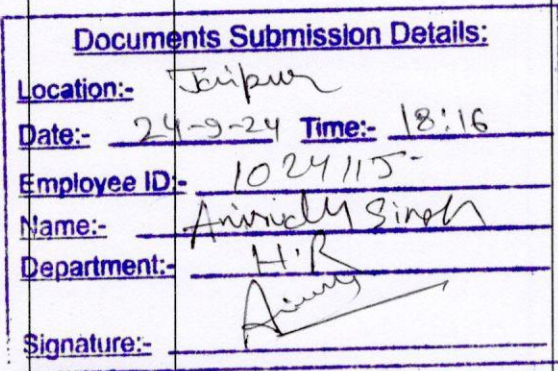 Documents Submission Details:
Location:- Jaipur
Date:- 24-9-24 Time:- 18:16
Employee ID:- 1024115-
Name:- Singh
Department:- H.R
Signature:-